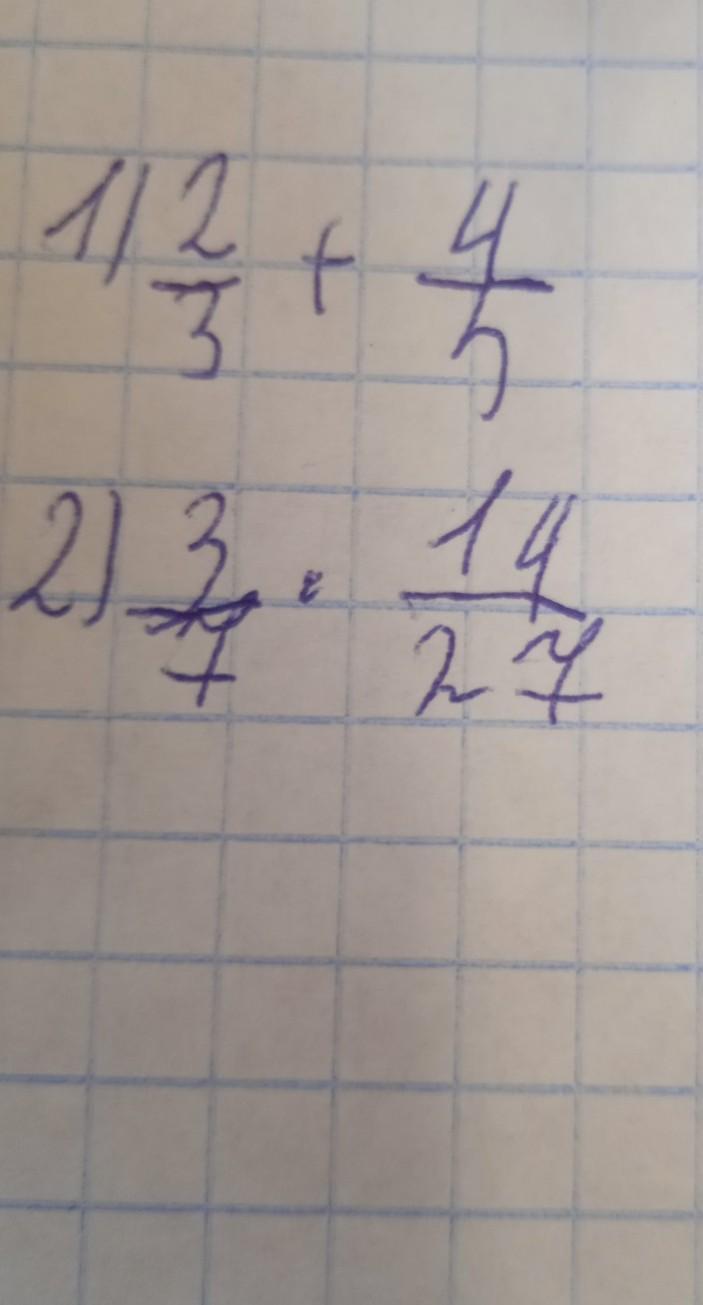 1) 2/3 + 4/5
2) 3/7 · 14/27